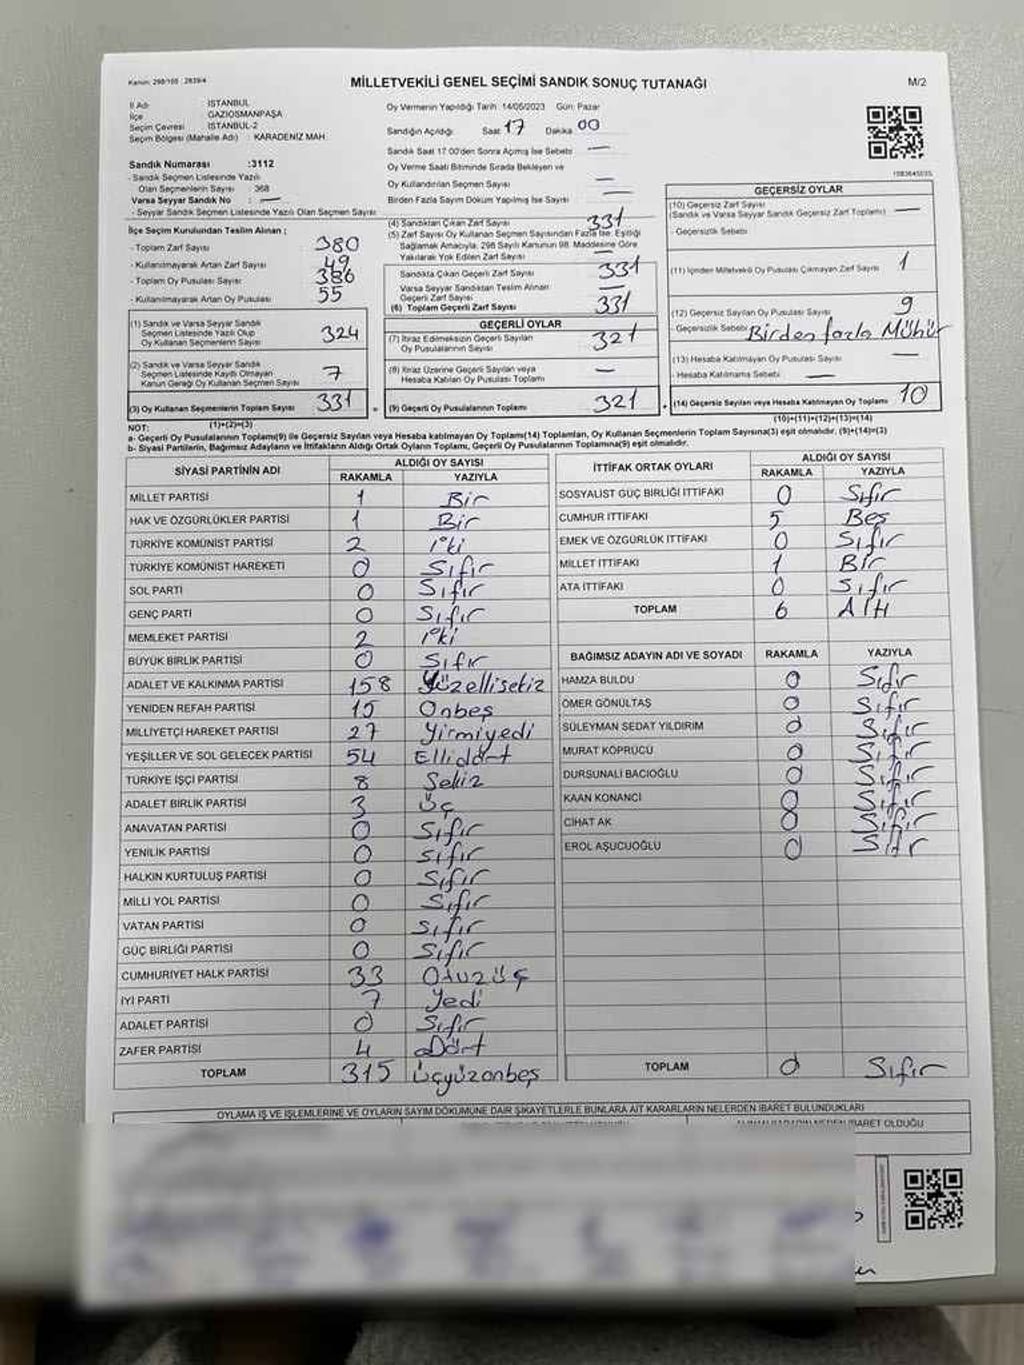 Kanun: 298/105 : 2839/4
MİLLETVEKİLİ GENEL SEÇİMİ SANDIK SONUÇ TUTANAĞI
M/2
İl Adı : İSTANBUL
İlçe : GAZİOSMANPAŞA
Seçim Çevresi : İSTANBUL-2
Seçim Bölgesi (Mahalle Adı) : KARADENİZ MAH.
Sandık Numarası :3112
- Sandık Seçmen Listesinde Yazılı
Olan Seçmenlerin Sayısı : 368
Varsa Seyyar Sandık No : —
- Seyyar Sandık Seçmen Listesinde Yazılı Olan Seçmen Sayısı
Oy Vermenin Yapıldığı Tarih: 14/05/2023 Gün: Pazar
Sandığın Açıldığı Saat 17 Dakika 00
Sandık Saat 17.00'den Sonra Açılmış İse Sebebi —
Oy Verme Saati Bitiminde Sırada Bekleyen ve
Oy Kullandırılan Seçmen Sayısı —
Birden Fazla Sayım Döküm Yapılmış İse Sayısı —
İlçe Seçim Kurulundan Teslim Alınan ;
- Toplam Zarf Sayısı 380
- Kullanılmayarak Artan Zarf Sayısı 49
- Toplam Oy Pusulası Sayısı 386
- Kullanılmayarak Artan Oy Pusulası 55
(1) Sandık ve Varsa Seyyar Sandık
Seçmen Listesinde Yazılı Olup
Oy Kullanan Seçmenlerin Sayısı 324
(2) Sandık ve Varsa Seyyar Sandık
Seçmen Listesinde Kayıtlı Olmayan
Kanun Gereği Oy Kullanan Seçmen Sayısı 7
(3) Oy Kullanan Seçmenlerin Toplam Sayısı 331
(1)+(2)=(3)
(4) Sandıktan Çıkan Zarf Sayısı 331
(5) Zarf Sayısı Oy Kullanan Seçmen Sayısından Fazla İse, Eşitliği
Sağlamak Amacıyla, 298 Sayılı Kanunun 98. Maddesine Göre
Yakılarak Yok Edilen Zarf Sayısı —
Sandıkta Çıkan Geçerli Zarf Sayısı 331
Varsa Seyyar Sandıktan Teslim Alınan
Geçerli Zarf Sayısı —
(6) Toplam Geçerli Zarf Sayısı 331
GEÇERLİ OYLAR
(7) İtiraz Edilmeksizin Geçerli Sayılan
Oy Pusulalarının Sayısı 321
(8) İtiraz Üzerine Geçerli Sayılan veya
Hesaba Katılan Oy Pusulası Toplamı —
(9) Geçerli Oy Pusulalarının Toplamı 321
GEÇERSİZ OYLAR
(10) Geçersiz Zarf Sayısı
(Sandık ve Varsa Seyyar Sandık Geçersiz Zarf Toplamı) —
- Geçersizlik Sebebi
(11) İçinden Milletvekili Oy Pusulası Çıkmayan Zarf Sayısı 1
(12) Geçersiz Sayılan Oy Pusulası Sayısı 9
- Geçersizlik Sebebi Birden fazla Mühür
(13) Hesaba Katılmayan Oy Pusulası Sayısı —
- Hesaba Katılmama Sebebi —
(14) Geçersiz Sayılan veya Hesaba Katılmayan Oy Toplamı 10
(10)+(11)+(12)+(13)=(14)
NOT:
a- Geçerli Oy Pusulalarının Toplamı(9) ile Geçersiz Sayılan veya Hesaba katılmayan Oy Toplamı(14) Toplamları, Oy Kullanan Seçmenlerin Toplam Sayısına(3) eşit olmalıdır. (9)+(14)=(3)
b- Siyasi Partilerin, Bağımsız Adayların ve İttifakların Aldığı Ortak Oyların Toplamı, Geçerli Oy Pusulalarının Toplamına(9) eşit olmalıdır.
SİYASİ PARTİNİN ADI ALDIĞI OY SAYISI
RAKAMLA YAZIYLA
MİLLET PARTİSİ 1 Bir
HAK VE ÖZGÜRLÜKLER PARTİSİ 1 Bir
TÜRKİYE KOMÜNİST PARTİSİ 2 iki
TÜRKİYE KOMÜNİST HAREKETİ 0 Sıfır
SOL PARTİ 0 Sıfır
GENÇ PARTİ 0 Sıfır
MEMLEKET PARTİSİ 2 iki
BÜYÜK BİRLİK PARTİSİ 0 Sıfır
ADALET VE KALKINMA PARTİSİ 158 Yüzellisekiz
YENİDEN REFAH PARTİSİ 15 Onbeş
MİLLİYETÇİ HAREKET PARTİSİ 27 Yirmiyedi
YEŞİLLER VE SOL GELECEK PARTİSİ 54 Ellidört
TÜRKİYE İŞÇİ PARTİSİ 8 Sekiz
ADALET BİRLİK PARTİSİ 3 Üç
ANAVATAN PARTİSİ 0 Sıfır
YENİLİK PARTİSİ 0 Sıfır
HALKIN KURTULUŞ PARTİSİ 0 Sıfır
MİLLİ YOL PARTİSİ 0 Sıfır
VATAN PARTİSİ 0 Sıfır
GÜÇ BİRLİĞİ PARTİSİ 0 Sıfır
CUMHURİYET HALK PARTİSİ 33 Otuzüç
İYİ PARTİ 7 Yedi
ADALET PARTİSİ 0 Sıfır
ZAFER PARTİSİ 4 Dört
TOPLAM 315 Üçyüzonbeş
İTTİFAK ORTAK OYLARI ALDIĞI OY SAYISI
RAKAMLA YAZIYLA
SOSYALİST GÜÇ BİRLİĞİ İTTİFAKI 0 Sıfır
CUMHUR İTTİFAKI 5 Beş
EMEK VE ÖZGÜRLÜK İTTİFAKI 0 Sıfır
MİLLET İTTİFAKI 1 Bir
ATA İTTİFAKI 0 Sıfır
TOPLAM 6 Altı
BAĞIMSIZ ADAYIN ADI VE SOYADI RAKAMLA YAZIYLA
HAMZA BULDU 0 Sıfır
ÖMER GÖNÜLTAŞ 0 Sıfır
SÜLEYMAN SEDAT YILDIRIM 0 Sıfır
MURAT KÖPRÜCÜ 0 Sıfır
DURSUNALİ BACIOĞLU 0 Sıfır
KAAN KONANCİ 0 Sıfır
CİHAT AK 0 Sıfır
EROL AŞUCUOĞLU 0 Sıfır
TOPLAM 0 Sıfır
OYLAMA İŞ VE İŞLEMLERİNE VE OYLARIN SAYIM DÖKÜMÜNE DAİR ŞİKAYETLERLE BUNLARA AİT KARARLARIN NELERDEN İBARET BULUNDUKLARI